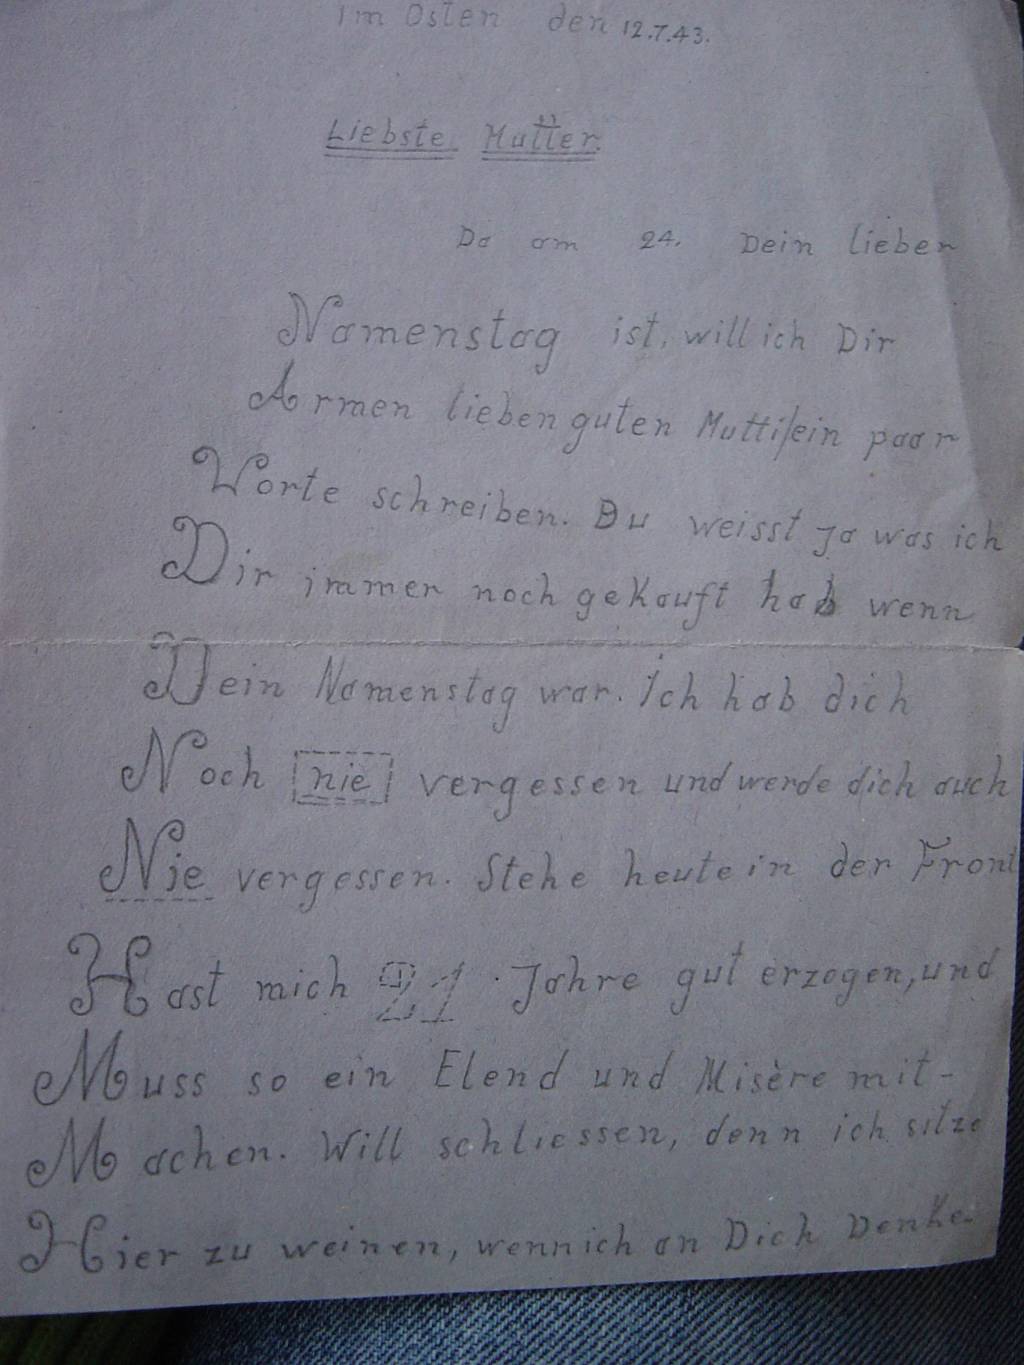 Im Osten den 12.7.43.
Liebste Mutter.
Da am 24. Dein lieber
Namenstag ist, will ich Dir
Armen lieben guten Muttilein paar
Worte schreiben. Du weisst ja was ich
Dir immer noch gekauft hab wenn
Dein Namenstag war. Ich hab dich
Noch nie vergessen und werde dich auch
Nie vergessen. Stehe heute in der Front
Hast mich 21 Jahre gut erzogen, und
Muss so ein Elend und Misère mit-
Machen. Will schliessen, denn ich sitze
Hier zu weinen, wenn ich an Dich Denke.